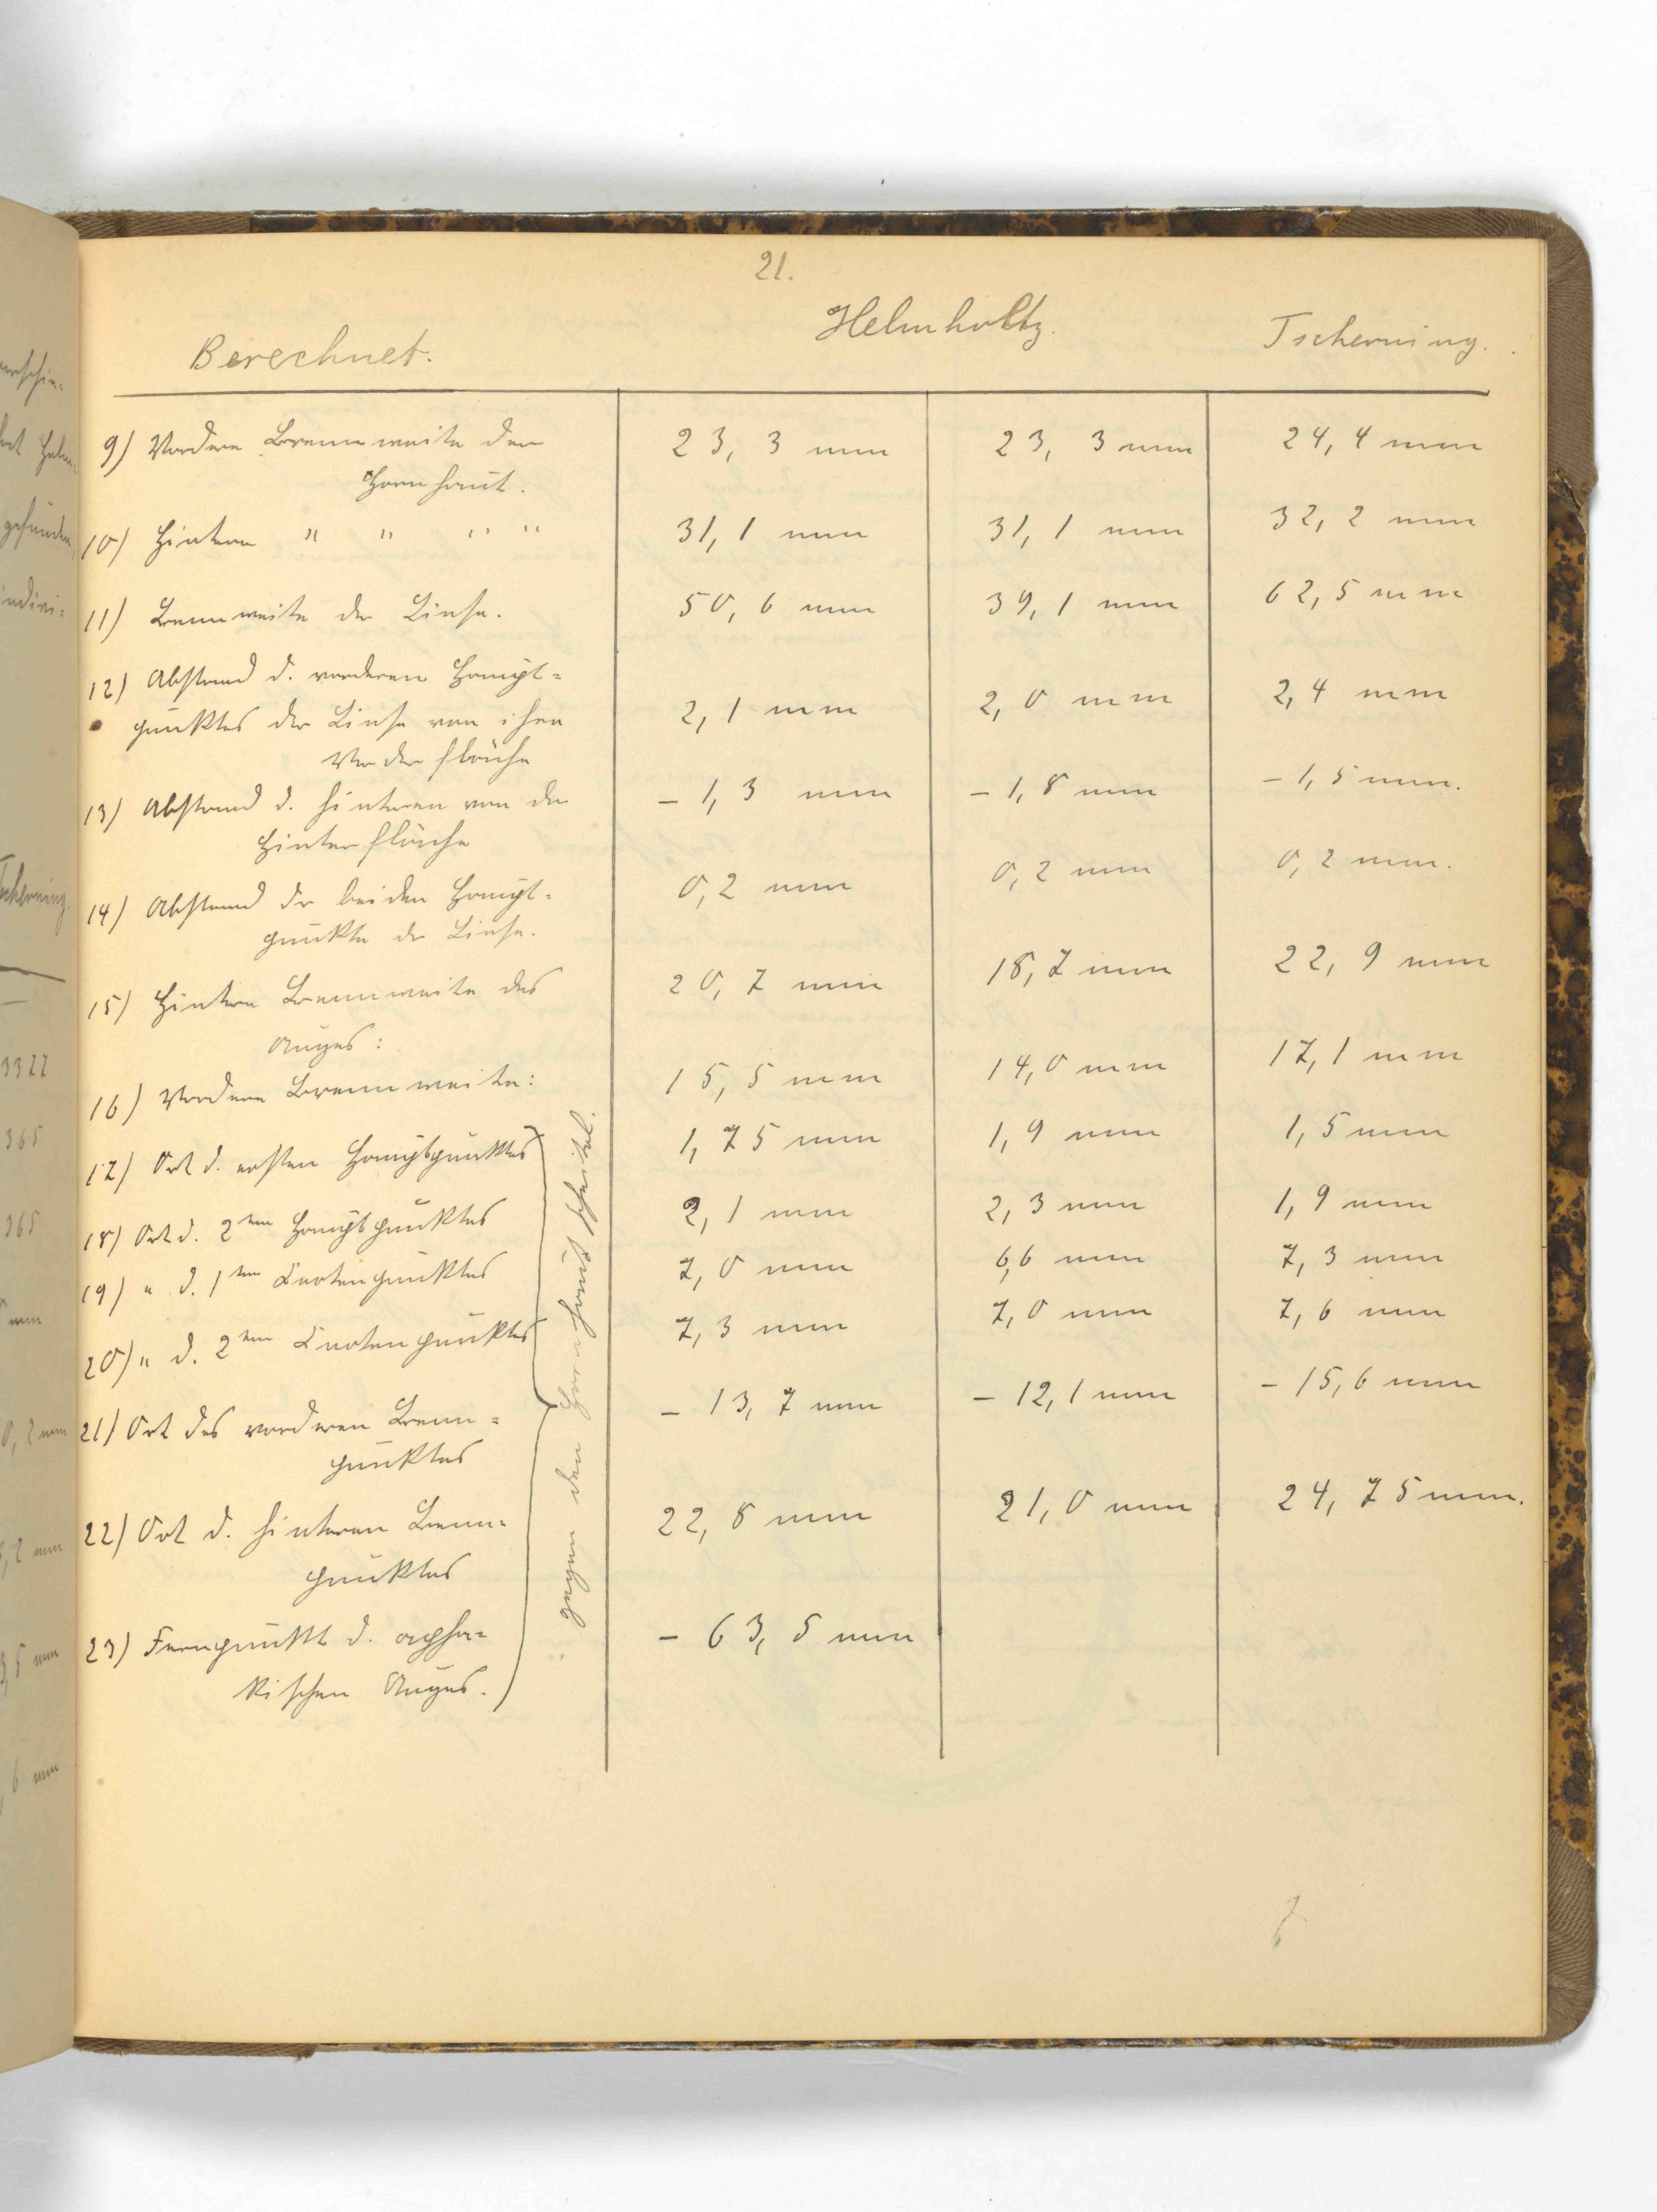 21.
Berechnet. Helmholtz. Tscherning.
9) Vordere Brennweite der 23,3 mm 23,3 mm 24,4 mm
Hornhaut.
10) Hintere " " " " 31,1 mm 31,1 mm 32,2 mm
11) Brennweite der Linse. 50,6 mm 39,1 mm 62,5 mm
12) Abstand d. vorderen Haupt=
punktes der Linse von ihrer 2,1 mm 2,0 mm 2,4 mm
Vorderfläche
13) Abstand d. hinteren von der – 1,3 mm – 1,8 mm – 1,5 mm.
Hinterfläche
14) Abstand der beiden Haupt- 0,2 mm 0,2 mm 0,2 mm.
punkte der Linse.
15) Hintere Brennweite des 20,7 mm 18,7 mm 22,9 mm
Auges:
16) Vordere Brennweite: 15,5 mm 14,0 mm 17,1 mm
17) Ort d. ersten Hauptpunktes 1,75 mm 1,9 mm 1,5 mm
18) Ort d. 2ten Hauptpunktes 2,1 mm 2,3 mm 1,9 mm
19) " d. 1ten Knotenpunktes 7,0 mm 6,6 mm 7,3 mm
20) " d. 2ten Knotenpunktes 7,3 mm 7,0 mm 7,6 mm
21) Ort des vorderen Brenn= – 13,7 mm – 12,1 mm – 15,6 mm
punktes
22) Ort d. hinteren Brenn= 22,8 mm 21,0 mm 24,75 mm.
punktes
23) Fernpunkt d. apha= – 63,5 mm
kischen Auges.
gegen den Hornhautscheitel.